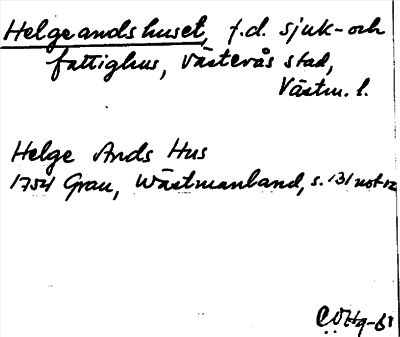 Helgeandshuset, f.d. sjuk- och
fattighus, Västerås stad,
Västm. l.
Helge Ands Hus
1754 Grau, Wästmanland, s. 131 not 12